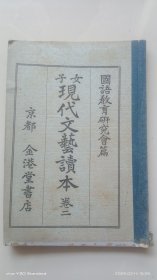 國語教育研究會篇
女子
現代文藝讀本 卷二
京都 金港堂書店